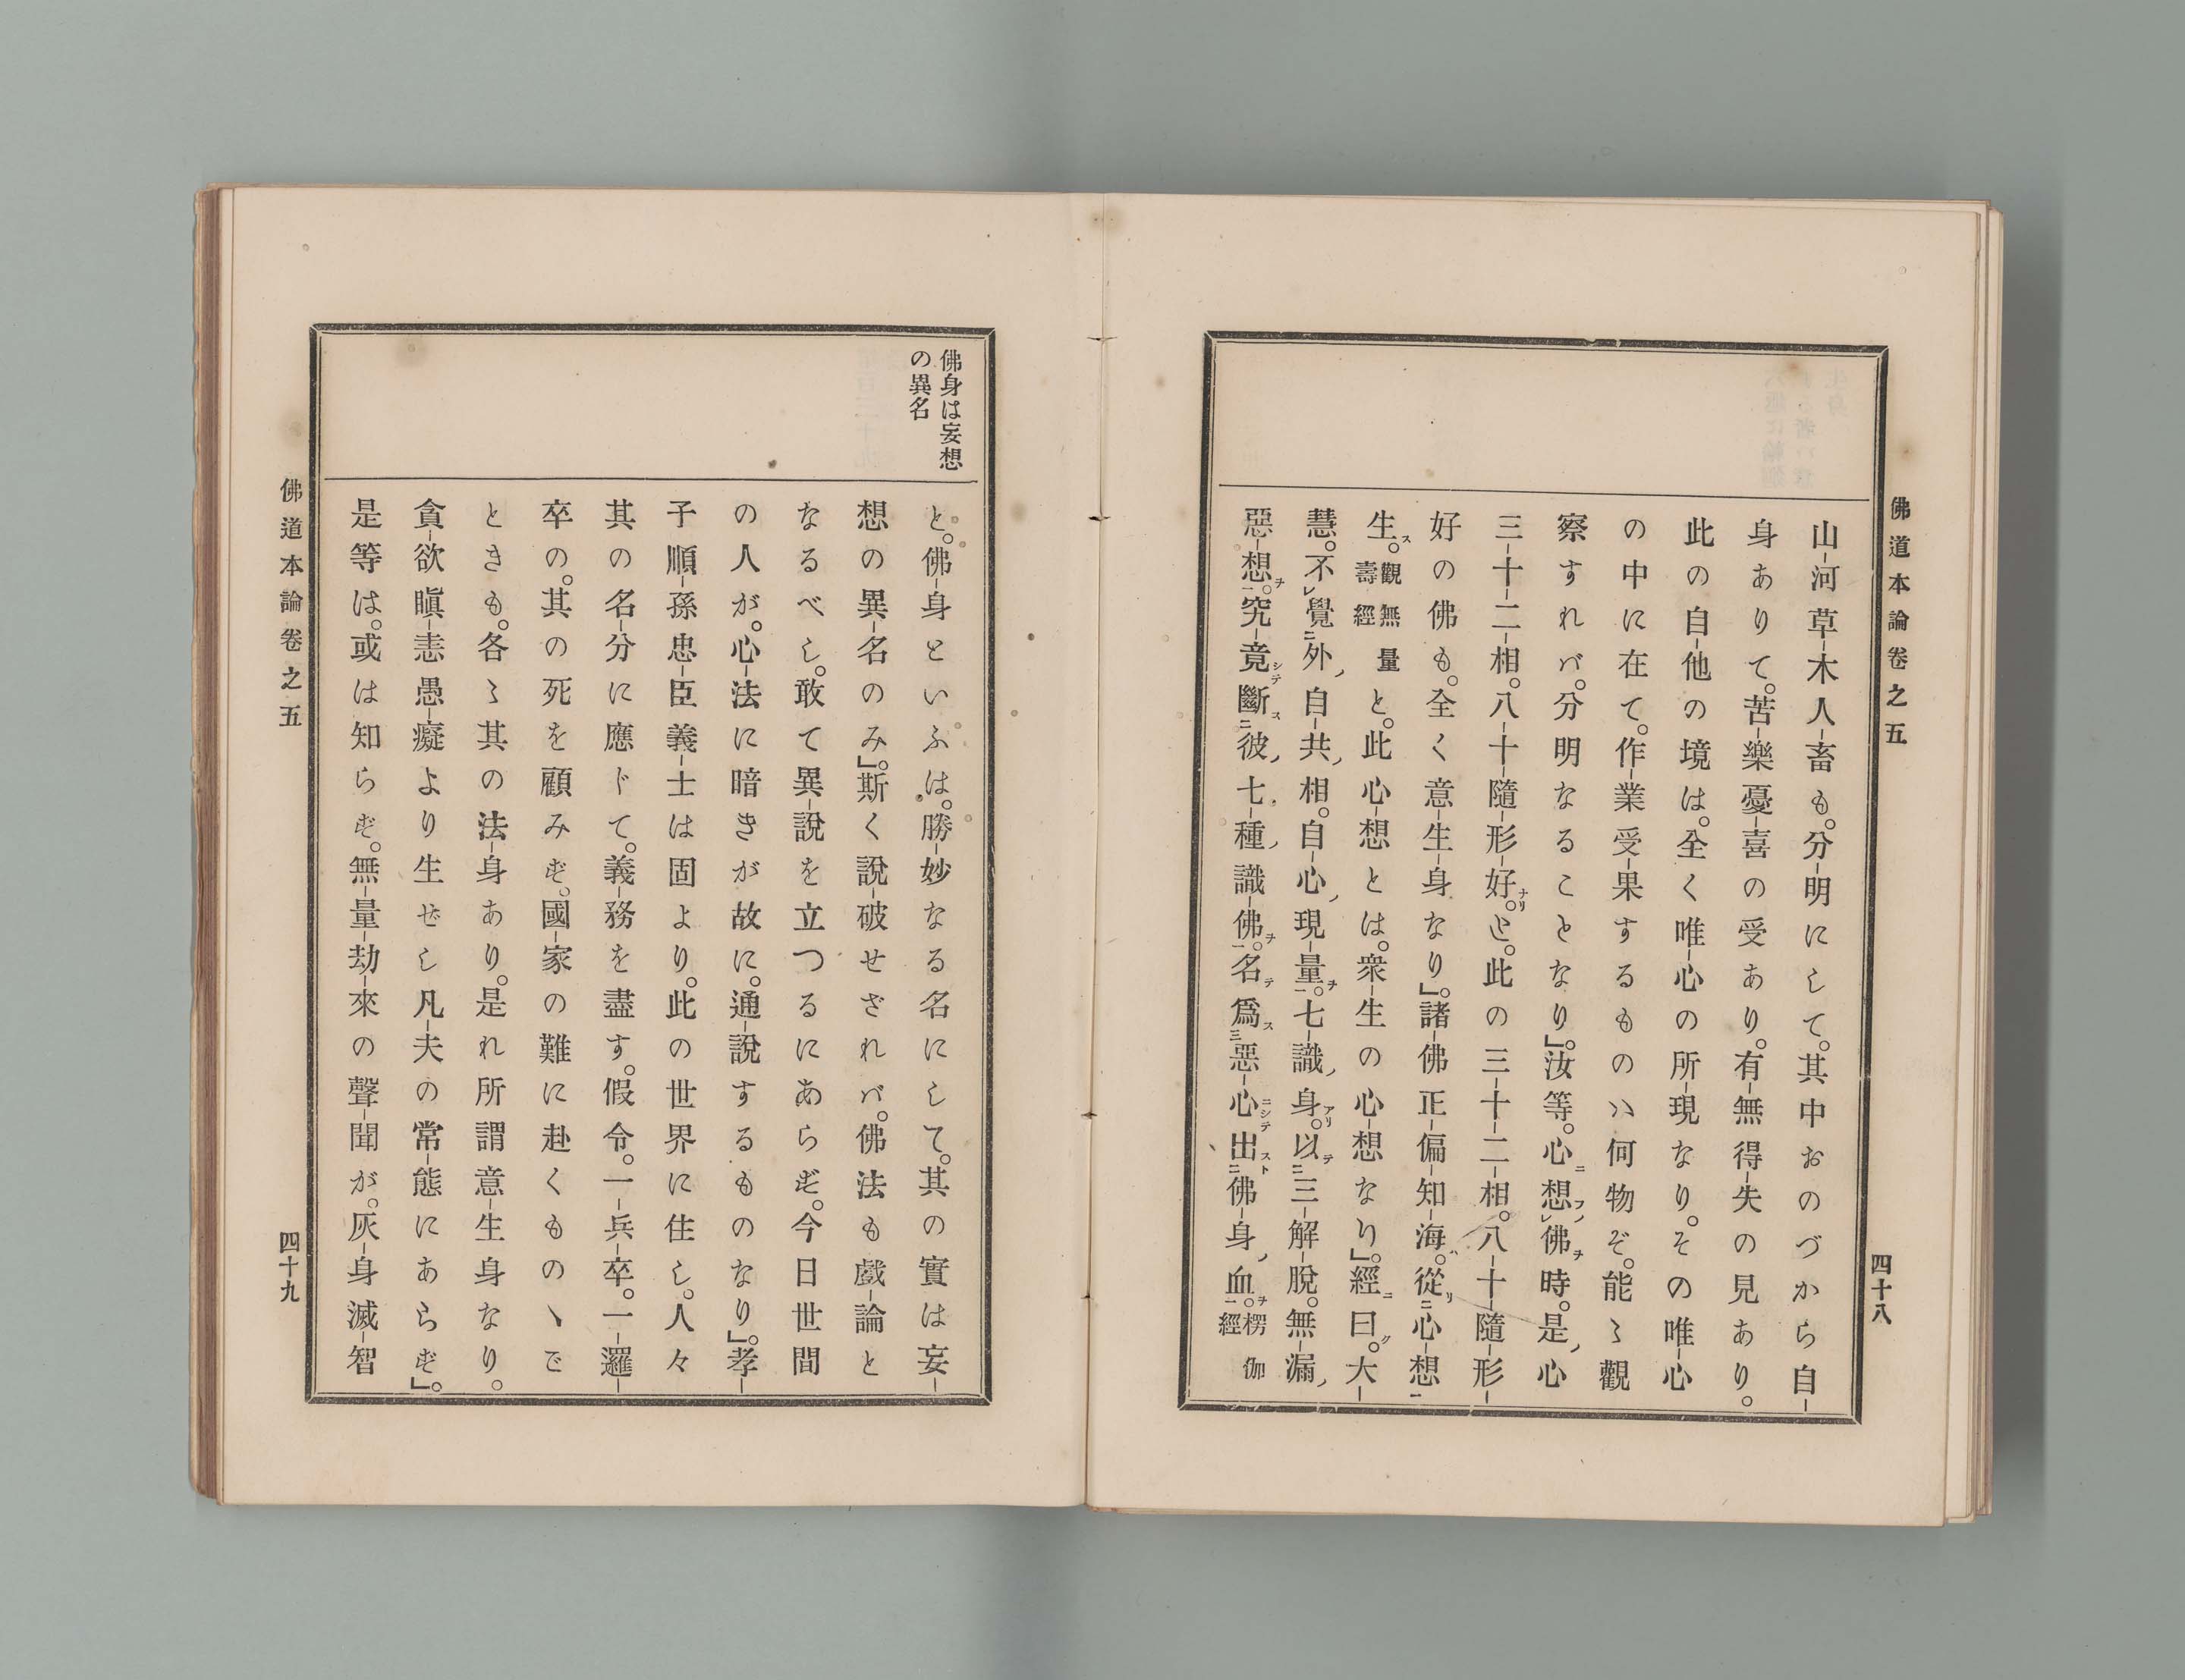 佛道本論卷之五
四十八
山-河草-木人-畜も。分-明にして。其中おのづから自-
身ありて。苦-樂憂-喜の受あり。有-無得-失の見あり。
此の自-他の境は。全く唯-心の所-現なり。その唯-心
の中に在て。作-業受-果するものハ何物ぞ。能〻觀
察すれバ。分明なることなり」。汝等。心ニ想フノレ佛ヲ時。是ノ心
三-十-二-相。八-十-隨-形-好ナリ。と。此の三-十-二-相。八-十-隨-形-
好の佛も。全く意-生-身なり」。諸-佛正-偏-知-海。ハ從リ二心-想一
生ス。觀無量壽經と。此心-想とは。衆-生の心-想なり」。經ニ曰ク。大-
慧。不レ覺二外ノ自-共ノ相。自-心ノ現-量ヲ一。七-識ノ身アリ。以テ二三-解-脫。無-漏ノ
惡-想ヲ一。究-竟シテ斷ス二彼ノ七-種ノ識-佛ヲ一。名テ爲ス三惡-心ニシテ出スト二佛-身ノ血ヲ一。楞伽經
佛身は妄想
の異名
と。佛-身といふは。勝-妙なる名にして。其の實は妄-
想の異-名のみ」。斯く說-破せざれバ。佛法も戲-論と
なるべし。敢て異-說を立つるにあらず。今日世間
の人が。心-法に暗きが故に。通-說するものなり」。孝-
子順-孫忠-臣義-士は固より。此の世界に住し。人々
其の名-分に應じて。義-務を盡す。假令。一-兵-卒。一-邏-
卒の。其の死を顧みず。國-家の難に赴くものヽで
ときも。各〻其の法-身あり。是れ所謂意-生身なり。
貪-欲瞋-恚愚-癡より生ぜし凡-夫の常-態にあらず」。
是等は。或は知らず。無-量-劫-來の聲-聞が。灰-身滅-智
佛道本論卷之五
四十九